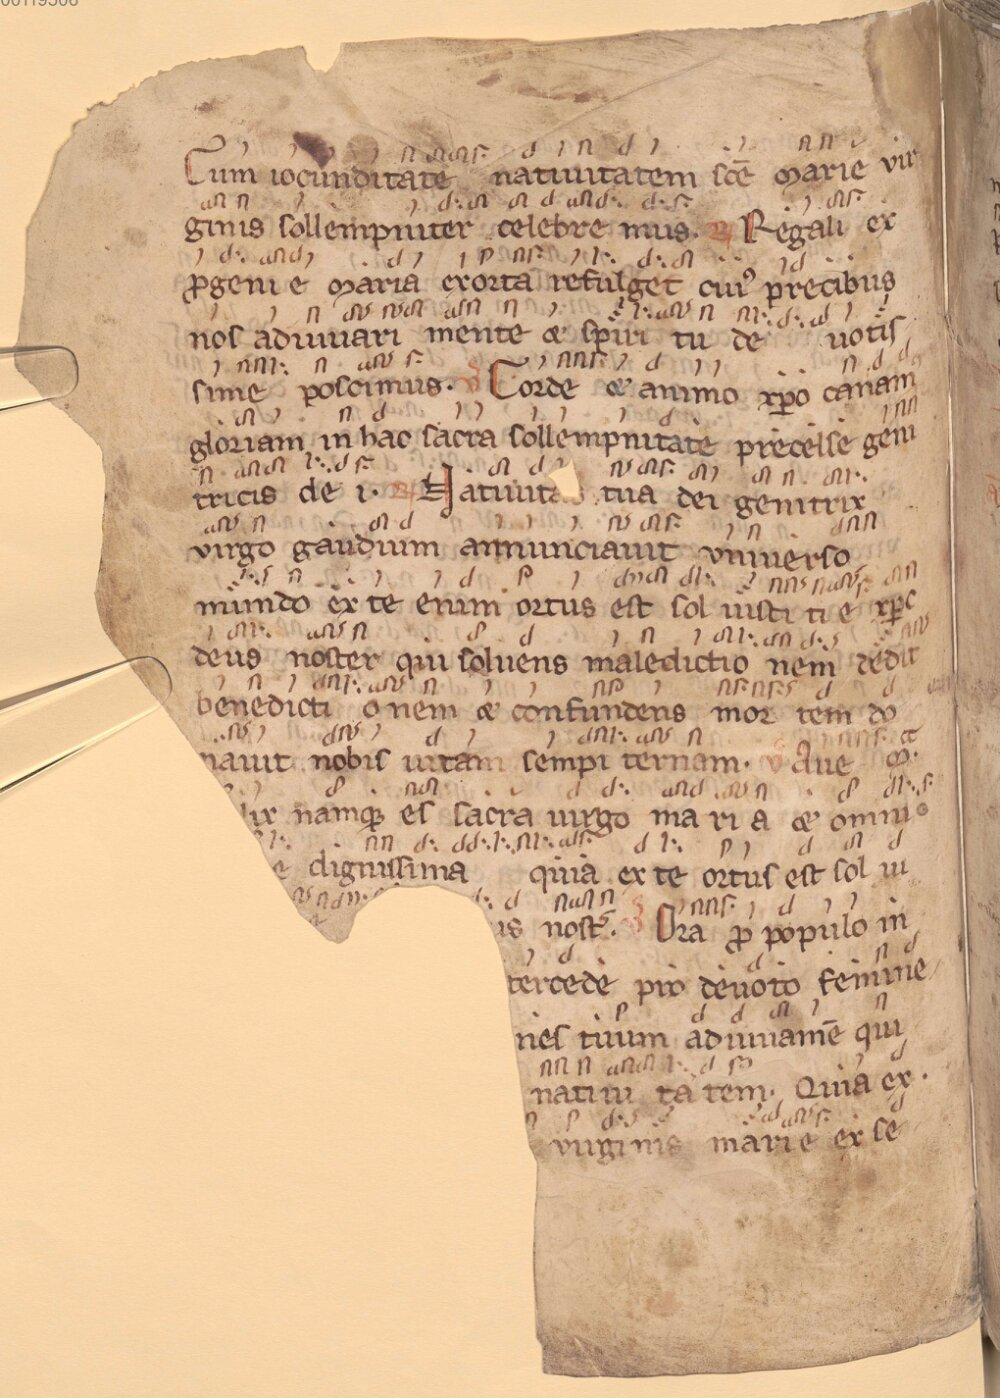 Cum iocunditate natiuitatem scē marie vir
ginis sollempniter celebre mus. R Regali ex
ꝓgeni e maria exorta refulget cuiꝰ precibus
nos adiuuari mente & spiri tu de uotis
sime poscimus. V Corde & animo xp̄o canam
gloriam in hac sacra sollempnitate precelse geni
tricis de i. R Natiuita tua dei genitrix
virgo gaudium annunciauit vniuerso
mundo ex te enim ortus est sol iusti ti e xp̄c
deus noster qui soluens maledictio nem dedit
benedicti onem & confundens mor tem do
nauit nobis uitam sempi ternam. V Aue M.
lix namqꝫ es sacra uirgo ma ri a & omni
e dignissima quia ex te ortus est sol iu
is nost̄. V Ora ꝓ populo in
tercede pro deuoto femine
nes tuum adiuuamē qui
natiui ta tem. Quia ex.
virginis marie ex se